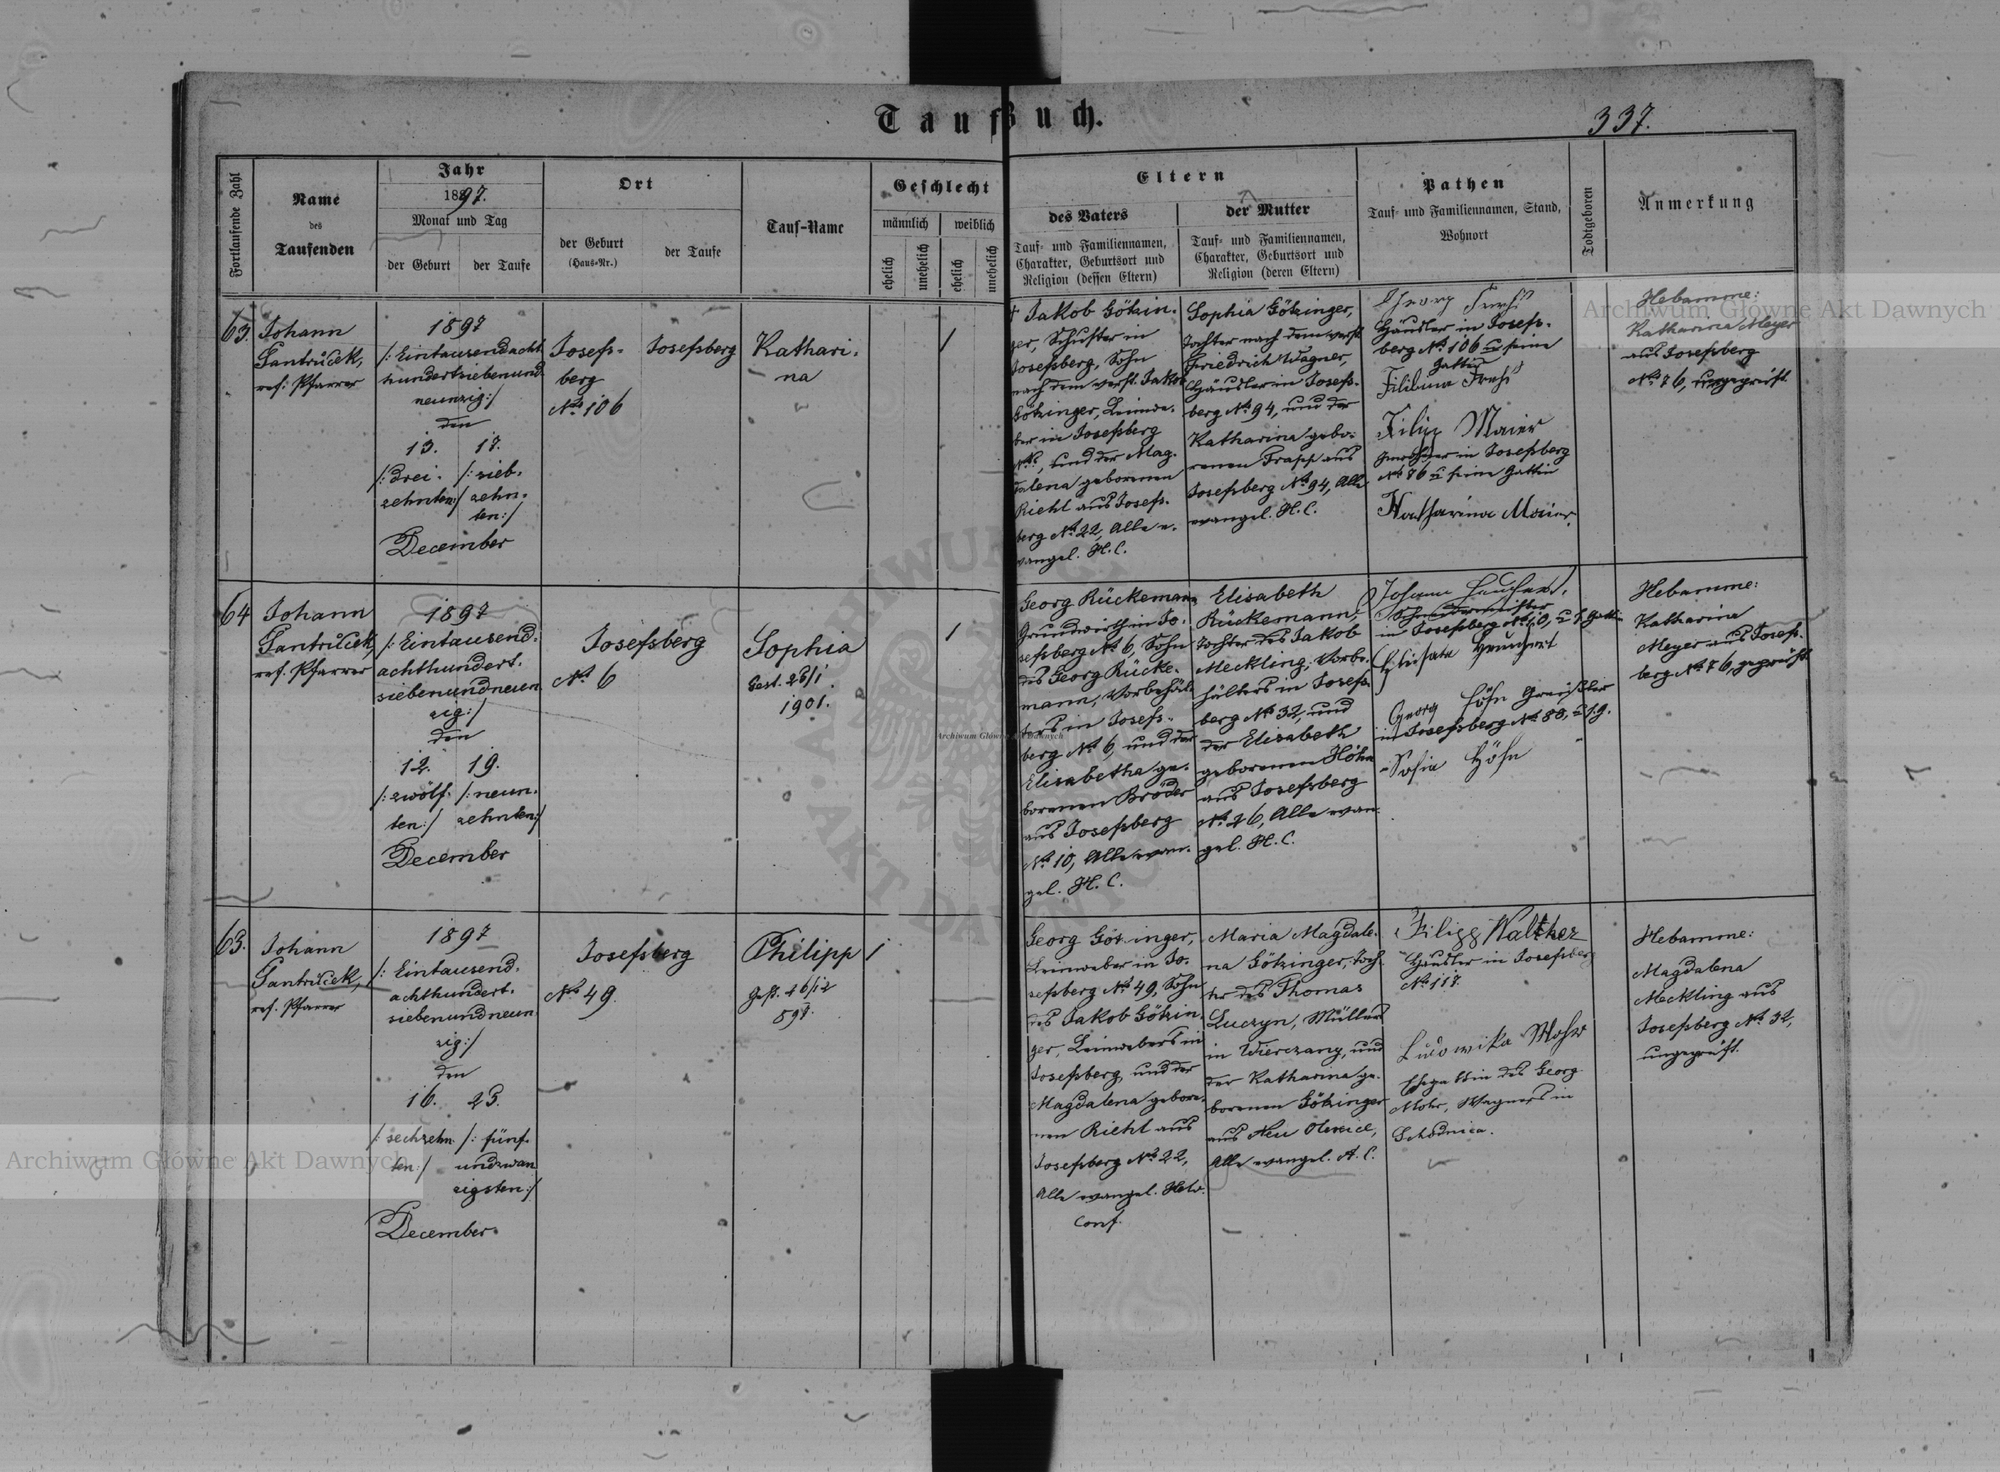 Taufbuch.
337.
Fortlaufende Zahl
Name
des
Taufenden
Jahr
1897.
Monat und Tag
der Geburt
der Taufe
Ort
der Geburt
(Haus-Nr.)
der Taufe
Tauf-Name
Geschlecht
männlich
weiblich
ehelich
unehelich
ehelich
unehelich
Eltern
des Vaters
Tauf- und Familiennamen,
Charakter, Geburtsort und
Religion (dessen Eltern)
der Mutter
Tauf- und Familiennamen,
Charakter, Geburtsort und
Religion (deren Eltern)
Pathen
Tauf- und Familiennamen, Stand,
Wohnort
Todigeboren
Anmerkung
63.
Johann
ref. Pfarrer
1897
/: Eintausendacht
hundertsiebenund-
neunzig :/
den
13. 17.
/: drei- /: sieb-
zehnten :/ zehn-
ten :/
December
Josefs-
berg
No 106
Josefsberg
Kathari-
na
1
† Jakob Götzin-
ger, Schuster in
Josefsberg, Sohn
nach dem verst. Jakob
Götzinger, Leinwe-
ber in Josefsberg
No, und der Mag-
dalena geborenen
Riehl aus Josefs-
berg No 22, Alle e-
vangel. H. C.
Sophia Götzinger,
Tochter nach dem verst.
Friedrich Wagner,
Häusler in Josefs-
berg No 94, und der
Katharina gebo-
renen Trapp aus
Josefsberg No 94, Alle
evangel. H. C.
Georg
Häusler in Josefs-
berg No 106 u seine
Gattin
Filibina
Filipp Maier
in Josefsberg
No 76 u seine Gattin
Katharina Maier
Hebamme:
Katharina Meyer
aus Josefsberg
No 76, ungeprüft.
64
Johann
ref. Pfarrer
1897
/: Eintausend-
achthundert-
siebenundneun
zig :/
den
12. 19.
/: zwölf- /: neun-
ten :/ zehnten :/
December
Josefsberg
No 6
Sophia
Gest. 26/1
1901.
1
Georg Rückemann
Grundwirth in Jo-
sefsberg No 6, Sohn
des Georg Rücke-
mann, Vorbehäl-
ters in Josefs-
berg No 6, und der
Elisabetha ge-
borenen Bröder
aus Josefsberg
No 10, Alle evan-
gel. H. C.
Elisabeth
Rückemann,
Tochter des Jakob
Meckling, Vorbe-
hälters in Josefs-
berg No 32, und
der Elisabeth
geborenen Höhn
aus Josefsberg
No 26, Alle evan-
gel. H. C.
Johann
in Josefsberg No 10, u s. Gattin
Georg Höhn
in Josefsberg No 80, u s. g.
Sofia Höhn
Hebamme:
Katharina
Meyer aus Josefs-
berg No 76, geprüft
63.
Johann
ref. Pfarrer
1897
/: Eintausend-
achthundert-
siebenundneun
zig :/
den
16. 25.
/: sechzehn- /: fünf-
ten :/ undzwan
zigsten :/
December
Josefsberg
No 49.
Philipp
Gest. 26/12
897.
1
Georg Götzinger,
Leinweber in Jo-
sefsberg No 49, Sohn
des Jakob Götzin-
ger, Leinwebers in
Josefsberg, und der
Magdalena gebore-
nen Riehl aus
Josefsberg No 22,
Alle evangel. Helv.
Conf.
Maria Magdale-
na Götzinger, Toch-
ter des Thomas
Luczyn, Müllers
in Wierczany, und
der Katharina ge-
borenen Götzinger
aus Neu Olexice,
Alle evangel. A. C.
Filipp Walther
Häusler in Josefsberg
No 117.
Ludowika Mohr
Ehegattin des Georg
Mohr, Wagners in
Schodnica.
Hebamme:
Magdalena
Meckling aus
Josefsberg No 32,
ungeprüft.
Archiwum Główne Akt Dawnych
Archiwum Główne Akt Dawnych
Archiwum Główne Akt Dawnych